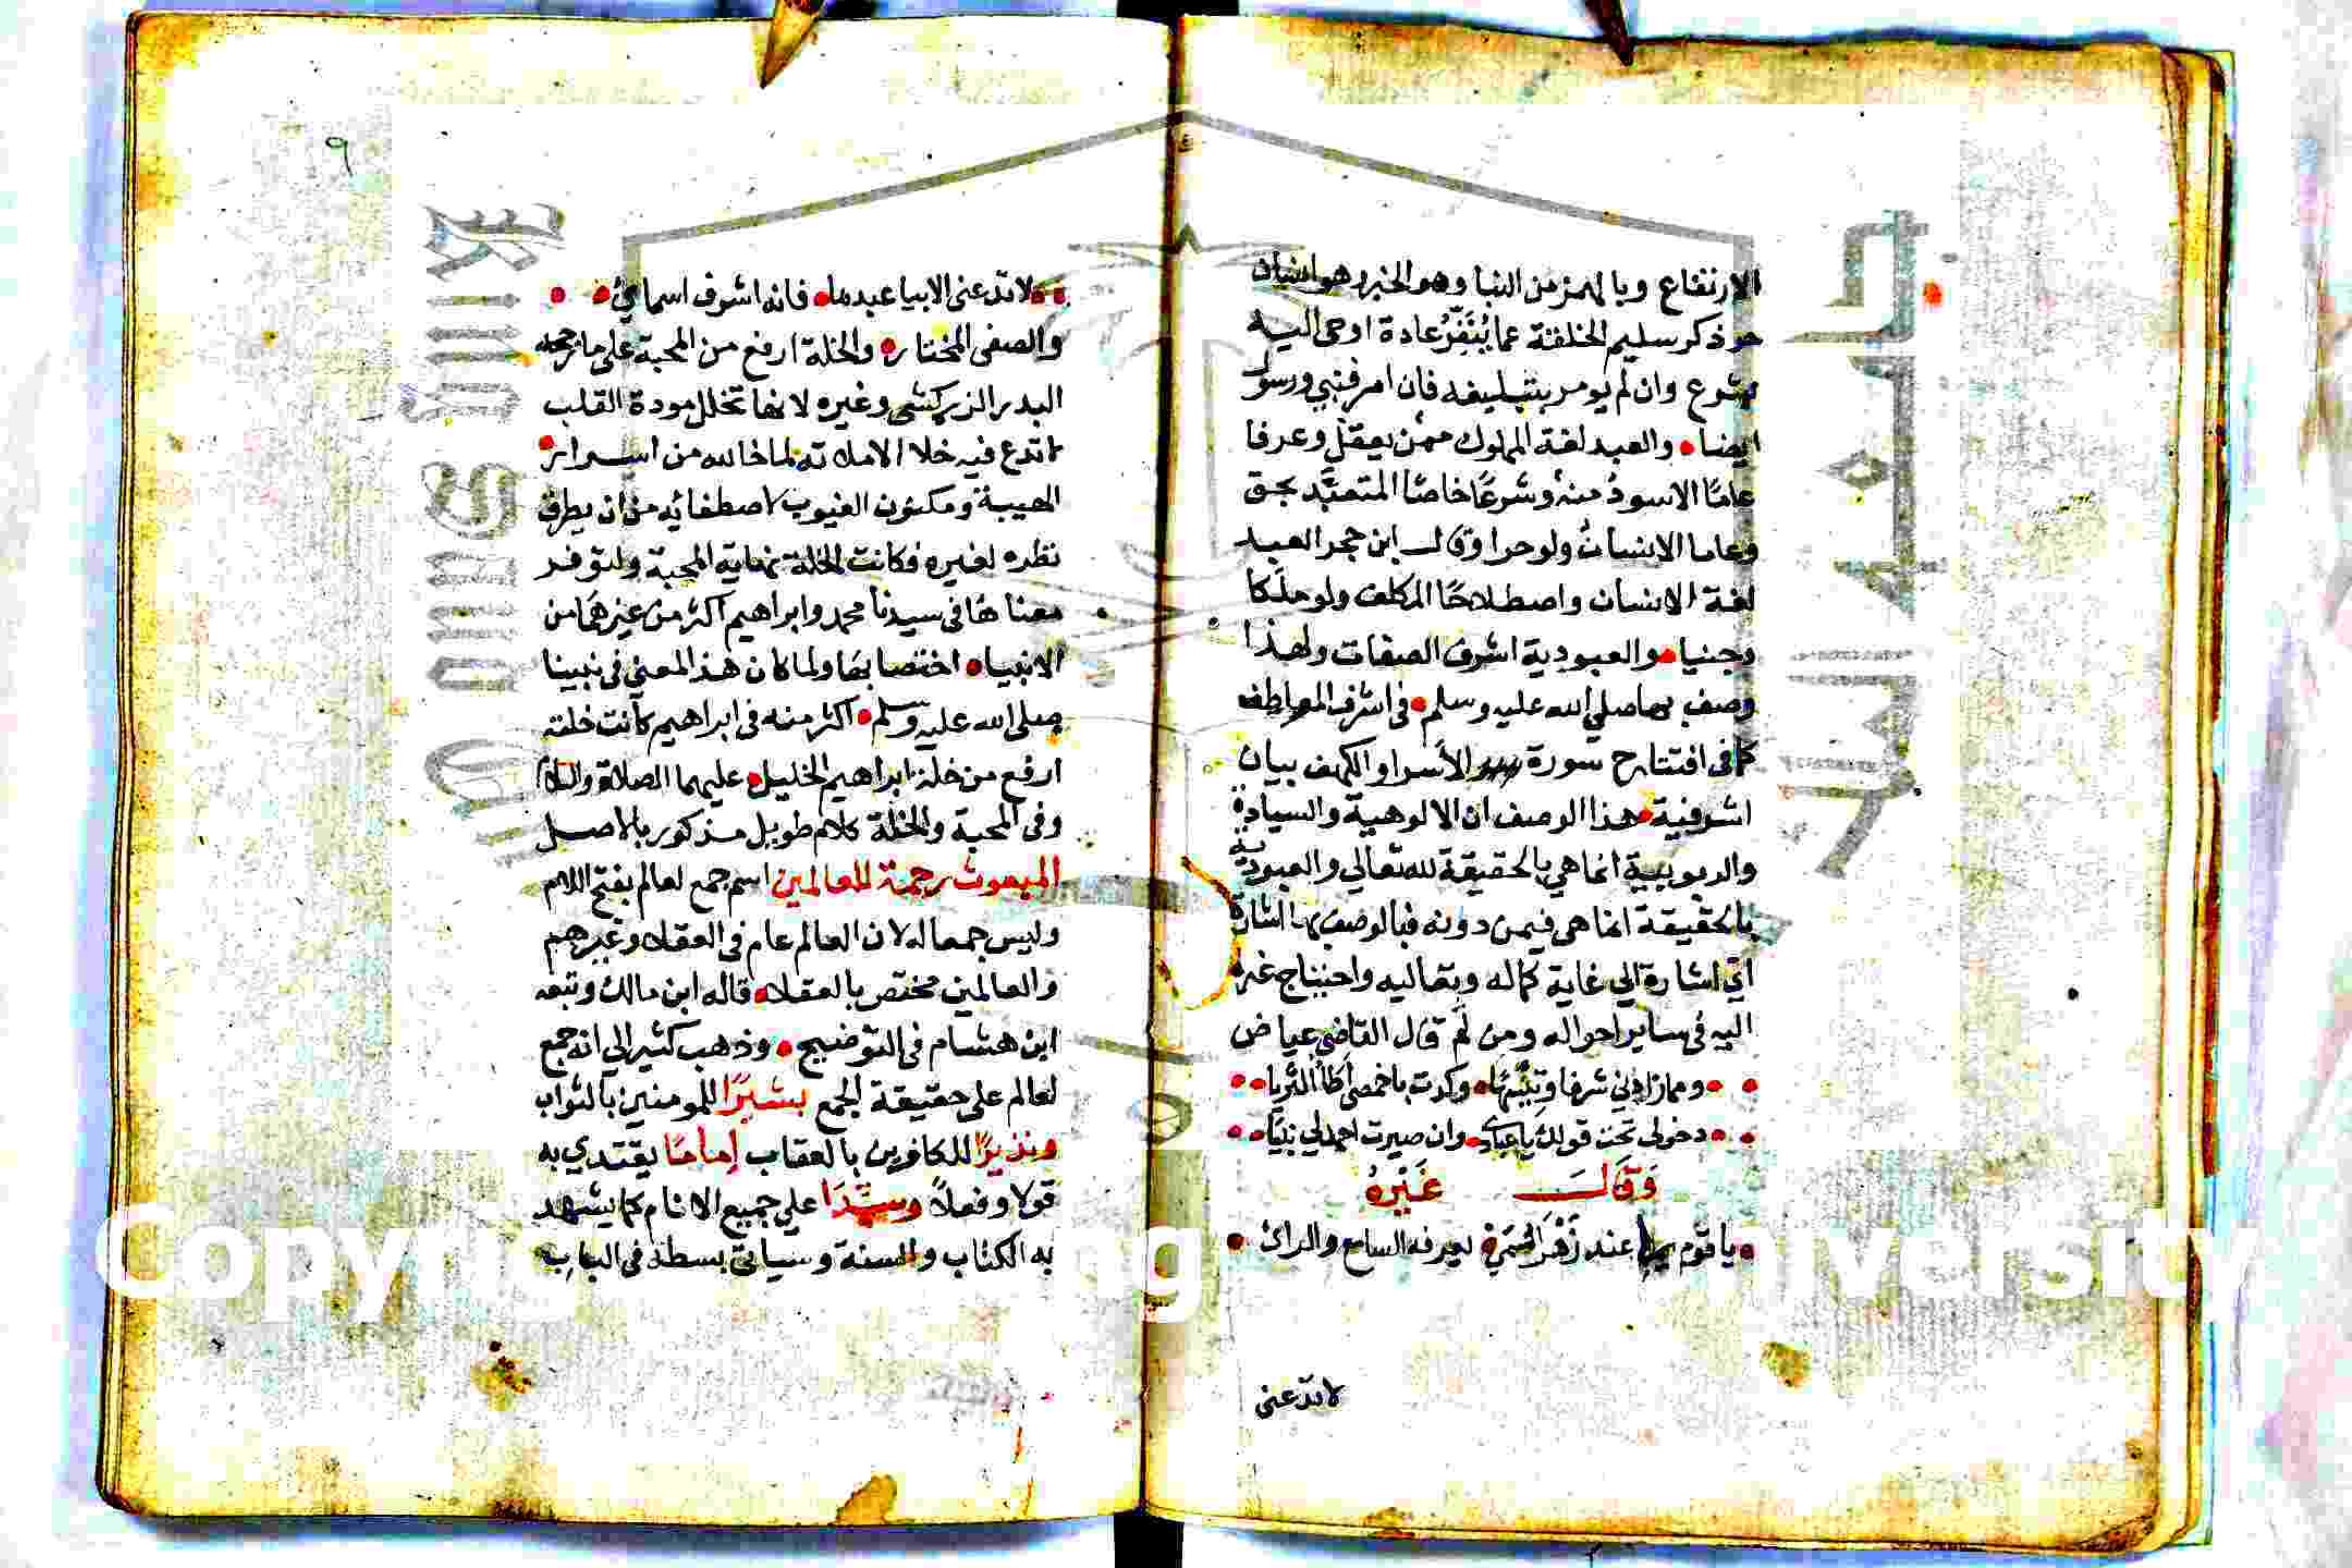 الارتفاع وبالهمز من النبا وهو الخبر وهو انسان
حر ذكر سليم الخلقة عما يُنَفِّرُ عادة اوحى اليه
بشرع وان لم يومر بتبليغه فان امر فنبي ورسول
ايضا والعبد لغة المملوك ممن يعقل وعرفا
عامًا الاسود منه وشرعًا خاصًا المتعبَّد بحق
وعاما الانسان ولو حرا وقال ابن حجر العبد
لغة الانسان واصطلاحًا المكلف ولو ملَكا
وجنيا والعبودية اشرف الصفات ولهذا
وصف بها صلي الله عليه وسلم في اشرف المواطف
كما في افتتاح سورة الأسرا والكهف بيان
اشرفية هذا الوصف ان الالوهية والسيادة
والربوبية انما هي بالحقيقة لله تعالي والعبودية
بالحقيقة انما هي فيمن دونه فبالوصف بها اشارة
اي اشارة الي غاية كماله وتعاليه واحتياج غيره
اليه في ساير احواله ومن ثم قال القاضي عياض
ومما زادني شرفا وتيهًا وكدت باخمصي اطأ الثريا
دخولي تحت قولك يا عبادي وان صيرت احمد لي نبيًا
وَقَالَ غَيْرُهُ
يا قوم عند زهر يعرفه السامع والراي
لا تدعني
٩
لا تدعني الا بيا عبدها فانه اشرف اسمائي
والصفي المختار والخلة ارفع من المحبة علي ما رجحه
البدر الزركشي وغيره لانها تخلل مودة القلب
لا تدع فيه خلا الا ملاته لما خالله من اسرار
الهيبة ومكنون الغيوب لاصطفائه من ان يطرق
نظره لغيره فكانت الخلة نهاية المحبة ولتوفر
معناها في سيدنا محمد وابراهيم اكثر من غيرهما من
الانبياء اختصا بها ولما كان هذا المعني في نبينا
صلى الله عليه وسلم اكثر منه في ابراهيم كانت خلته
ارفع من خلة ابراهيم الخليل عليهما الصلاة والسلام
وفي المحبة والخلة كلام طويل مذكور بالاصل
المبعوث رحمة للعالمين اسم جمع لعالم بفتح اللام
وليس جمعا له لان العالم عام في العقلا وغيرهم
والعالمين مختص بالعقلا قاله ابن مالك وتبعه
ابن هشام في التوضيح وذهب كثير الي انه جمع
لعالم علي حقيقة الجمع بشيرًا للمومنين بالثواب
ونذيرًا للكافرين بالعقاب إمامًا يقتدي به
قولا وفعلاً وسيّدًا علي جميع الانام كما يشهد
به الكتاب والسنة وسياتي بسطه في الباب